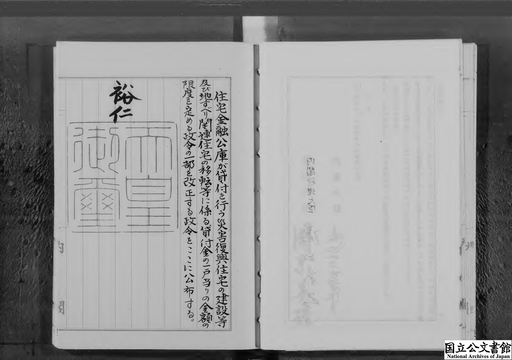 住宅金融公庫が貸付を行う災害復興住宅の建設等
及び地すべり関連住宅の移転等に係る貸付金の一戸当りの金額の
限度を定める政令の一部を改正する政令をここに公布する。
裕仁
天皇
御璽
国立公文書館
National Archives of Japan